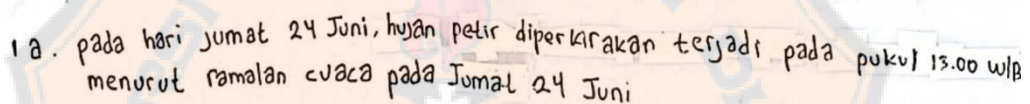 1a. pada hari Jumat 24 Juni, hujan petir diperkirakan terjadi pada pukul 13.00 WIB
menurut ramalan cuaca pada Jumat 24 Juni